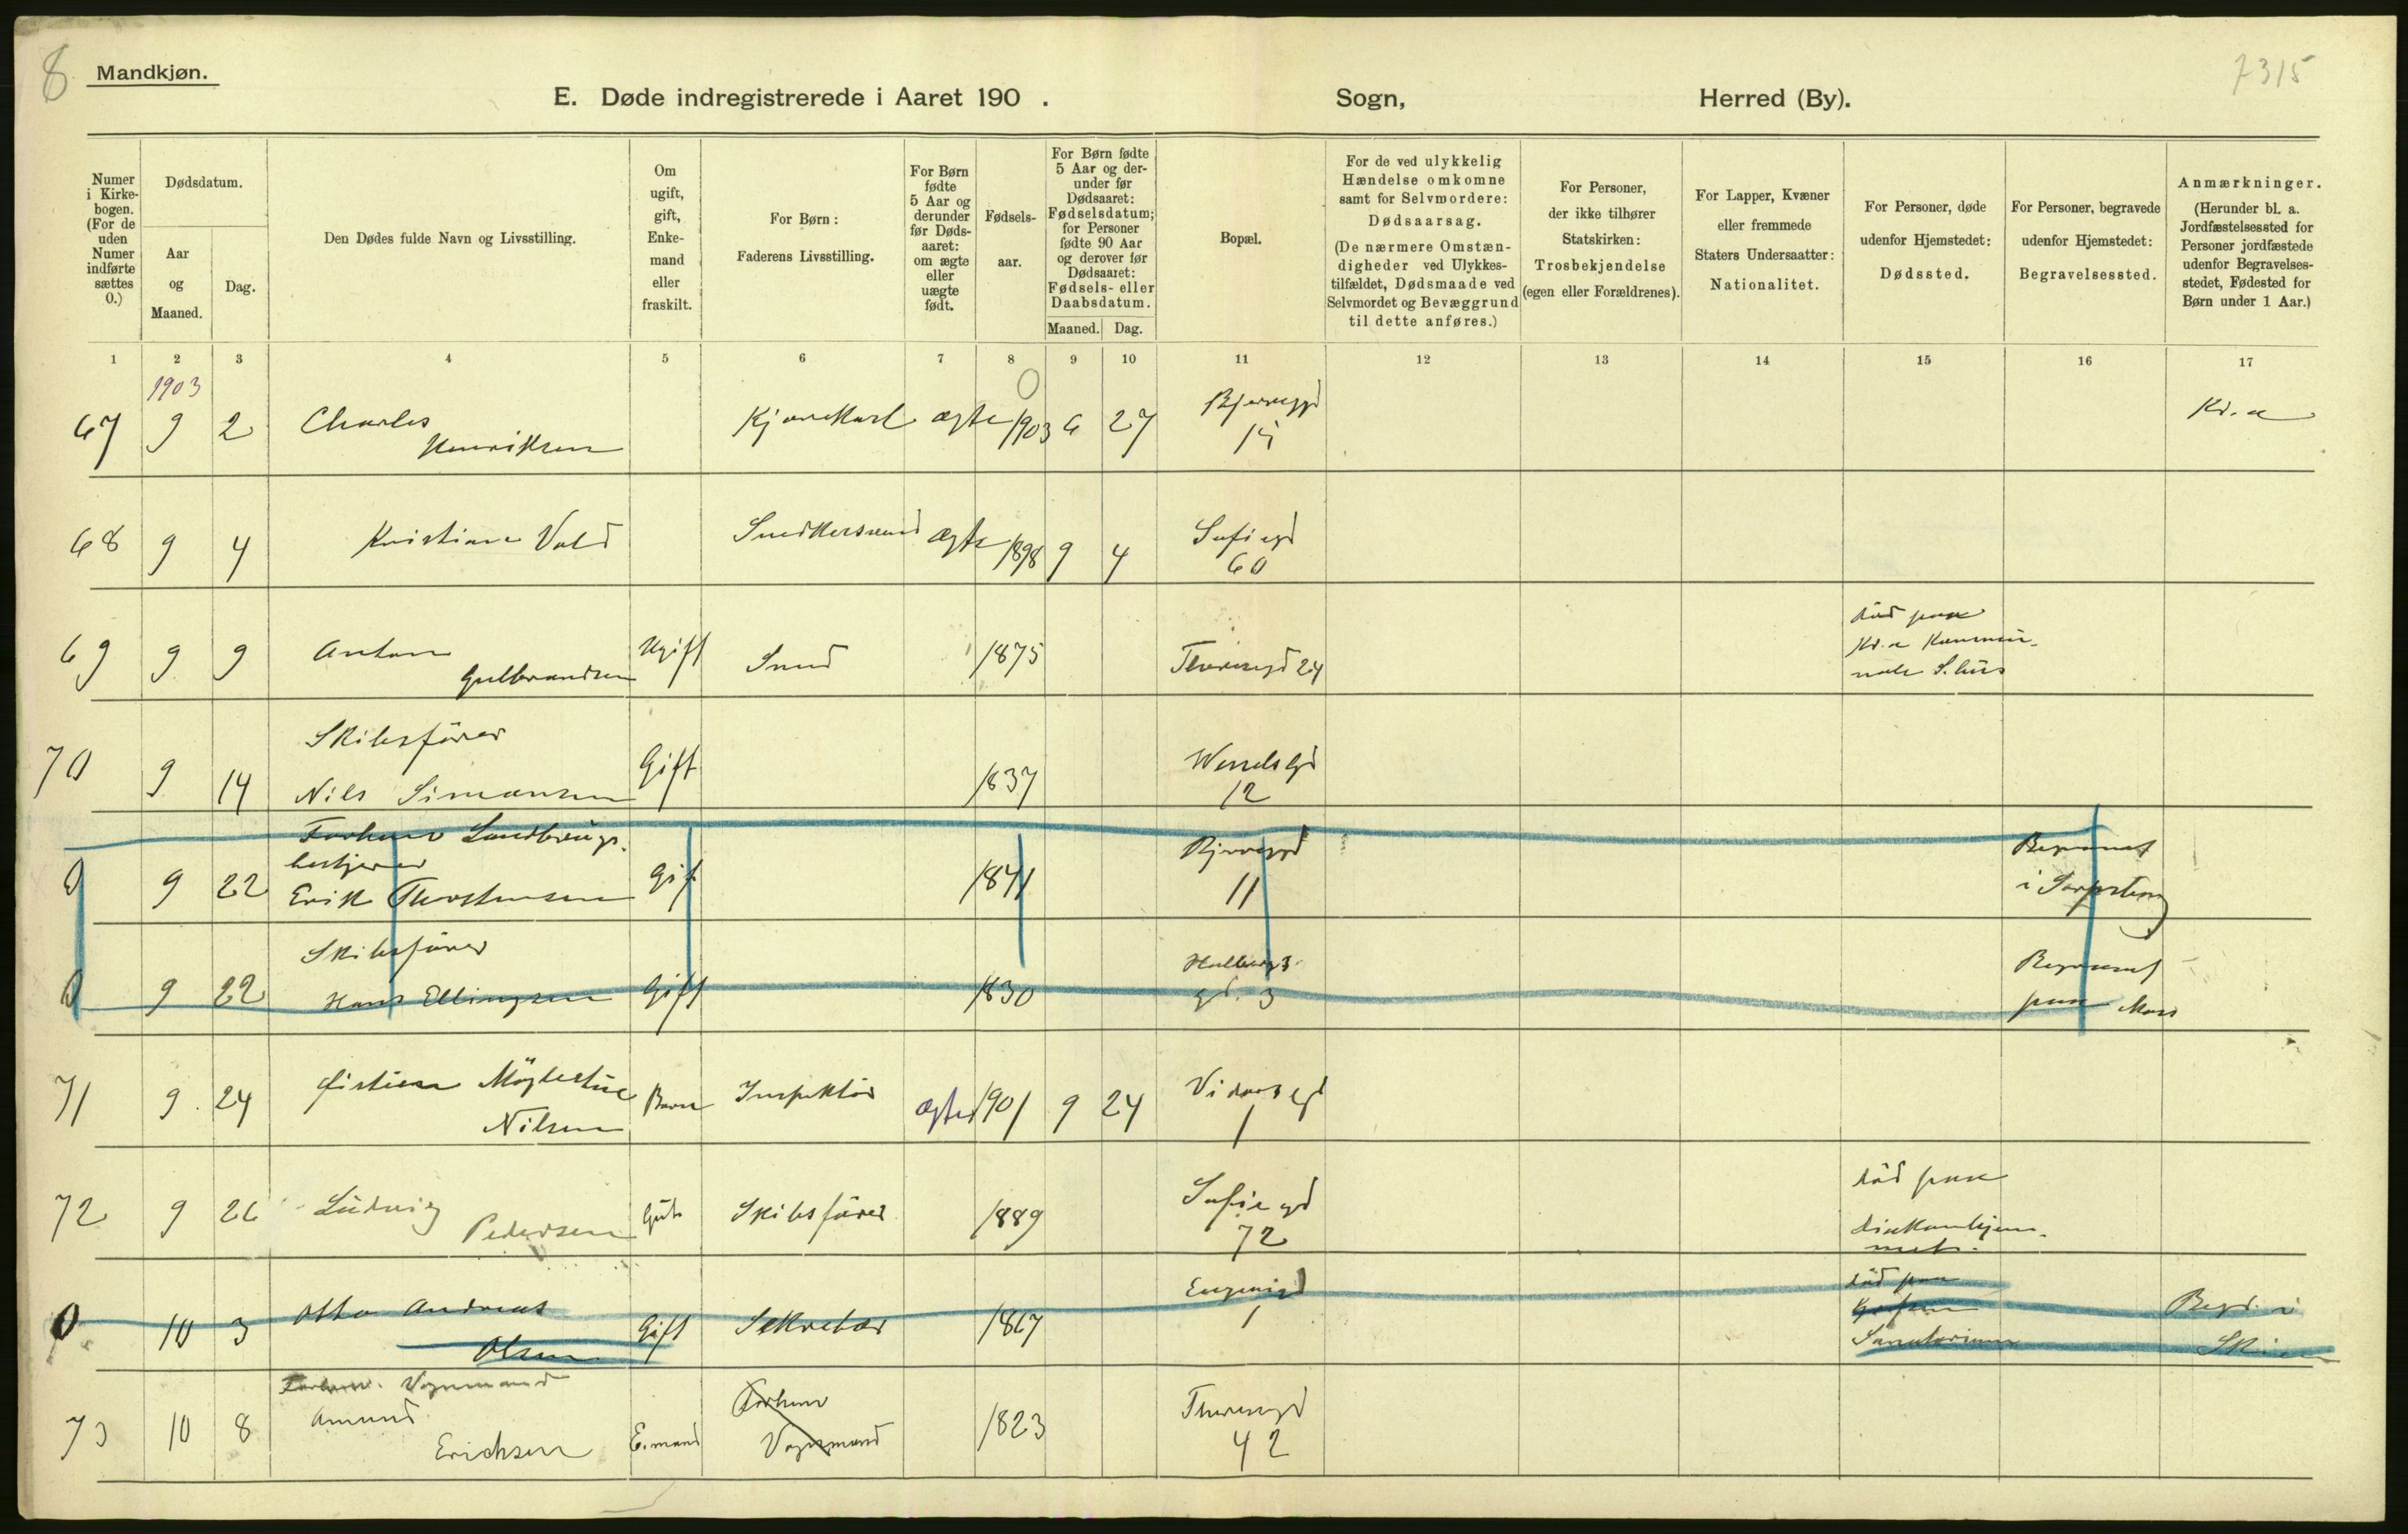 8
Mandkjøn.
7315
E. Døde indregistrerede i Aaret 190 . Sogn, Herred (By).
Numer i Kirkebogen. (For de uden Numer indførte sættes 0.)
Dødsdatum.
Aar og Maaned.
Dag.
Den Dødes fulde Navn og Livsstilling.
Om ugift, gift, Enkemand eller fraskilt.
For Børn: Faderens Livsstilling.
For Børn fødte 5 Aar og derunder før Dødsaaret: om ægte eller uægte født.
Fødselsaar.
For Børn fødte 5 Aar og derunder før Dødsaaret: Fødselsdatum; for Personer fødte 90 Aar og derover før Dødsaaret: Fødsels- eller Daabsdatum.
Maaned. Dag.
Bopæl.
For de ved ulykkelig Hændelse omkomne samt for Selvmordere: Dødsaarsag.
(De nærmere Omstændigheder ved Ulykkestilfældet, Dødsmaade ved Selvmordet og Bevæggrund til dette anføres.)
For Personer, der ikke tilhører Statskirken: Trosbekjendelse (egen eller Forældrenes).
For Lapper, Kvæner eller fremmede Staters Undersaatter: Nationalitet.
For Personer, døde udenfor Hjemstedet: Dødssted.
For Personer, begravede udenfor Hjemstedet: Begravelsessted.
Anmærkninger. (Herunder bl. a. Jordfæstelsessted for Personer jordfæstede udenfor Begravelsesstedet, Fødested for Børn under 1 Aar.)
1 2 3 4 5 6 7 8 9 10 11 12 13 14 15 16 17
1903
67 9 2 Charles Henriksen Kjørekarl ægte 1903 6 27 Kr.a
68 9 4 Kristian Vold Snedkersvend ægte 1898 9 4 Sofiegd 60
69 9 9 Anton Gulbrandsen Ugift Smed 1875 Theresegd 24 död paa Kr.a Kommunale S.hus
70 9 14 Skibsförer Nils Simonsen Gift 1837 Wesselsgd 12
0 9 22 Forhenv Landbrugsbestyrer Erik Thorstensen Gift 1841 Bjerregd 11 Begravet i Sarpsborg
0 9 22 Skibsförer Hans Ellingsen Gift 1830 Holbergsgd. 3 Begravet paa Moss
71 9 24 Nilsen Barn Inspektör ægte 1901 9 24 Vidarsgd 1
72 9 26 Ludvig Pedersen Gut Skibsförer 1889 Sofiegd 72 död paa Diakonhjemmet.
0 10 3 Otto Andreas Olsen Gift Sekretær 1867 Eugenigd 1 död paa Grefsen Sanatorium Begr. i Skien
73 10 8 Forhenv. Vognmand Amund Erichsen E.mand Forhenv Vognmand 1823 Theresegd 42